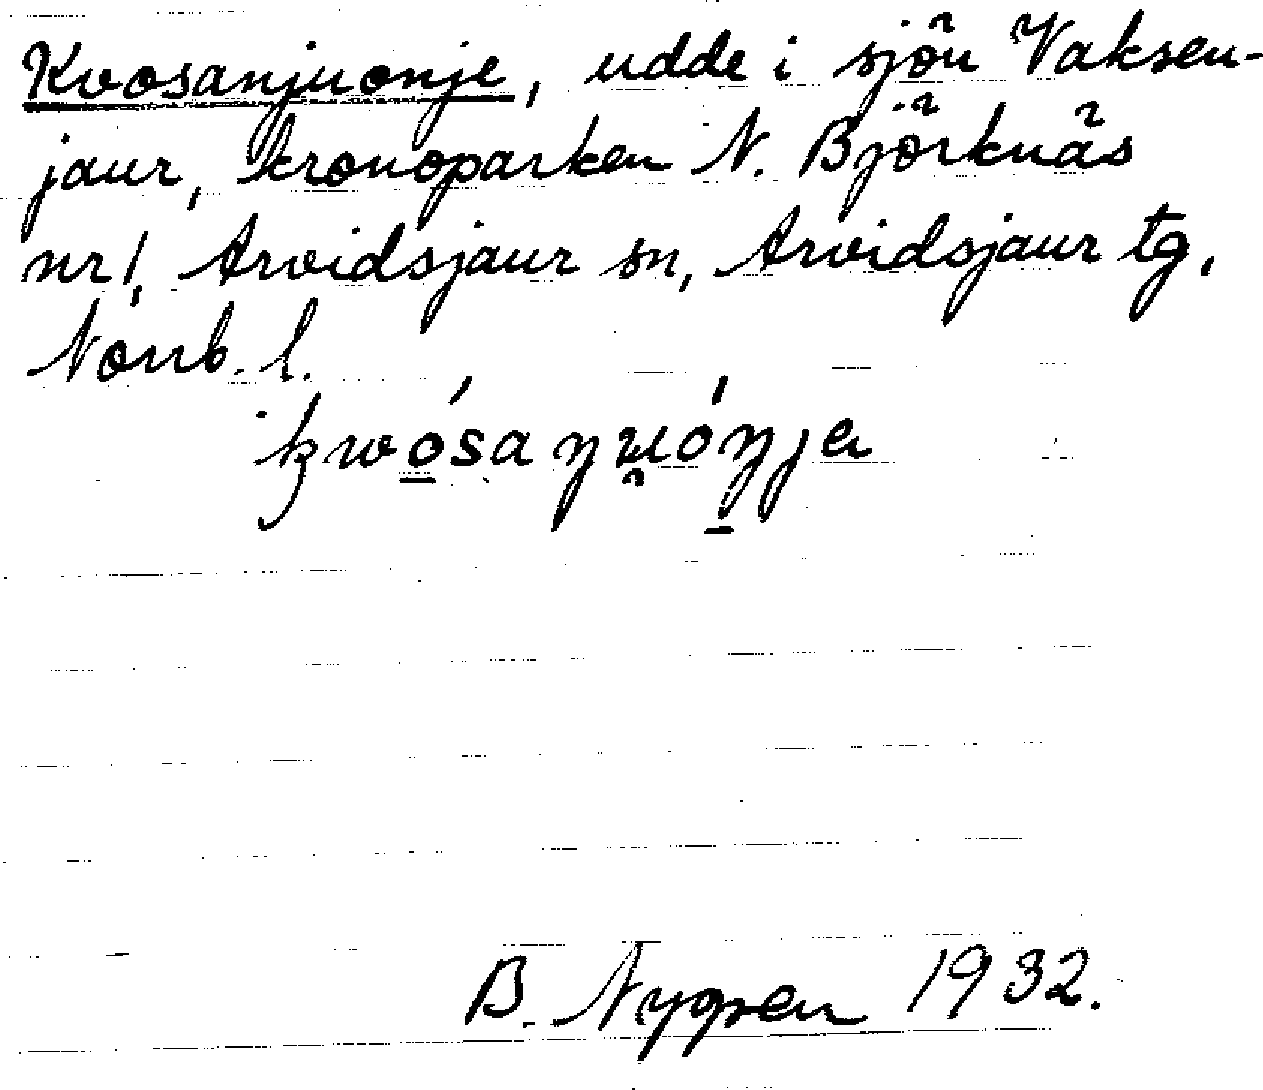 Kvosanjuonje, udde i sjön Vaksen-
jaur, kronoparken N. Björknäs
nr 1, Arvidsjaur sn, Arvidsjaur tg,
Norrb. l.
kwósaŋu̯óŋje
B. Nygren 1932.